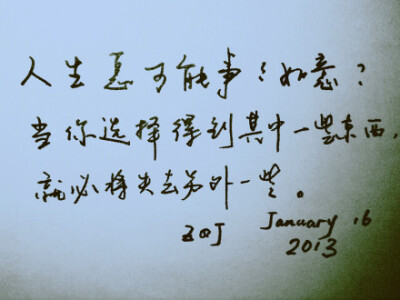 人生怎可能事事如意？
当你选择得到其中一些东西，
就必将失去另外一些。
ZOJ January 16
2013